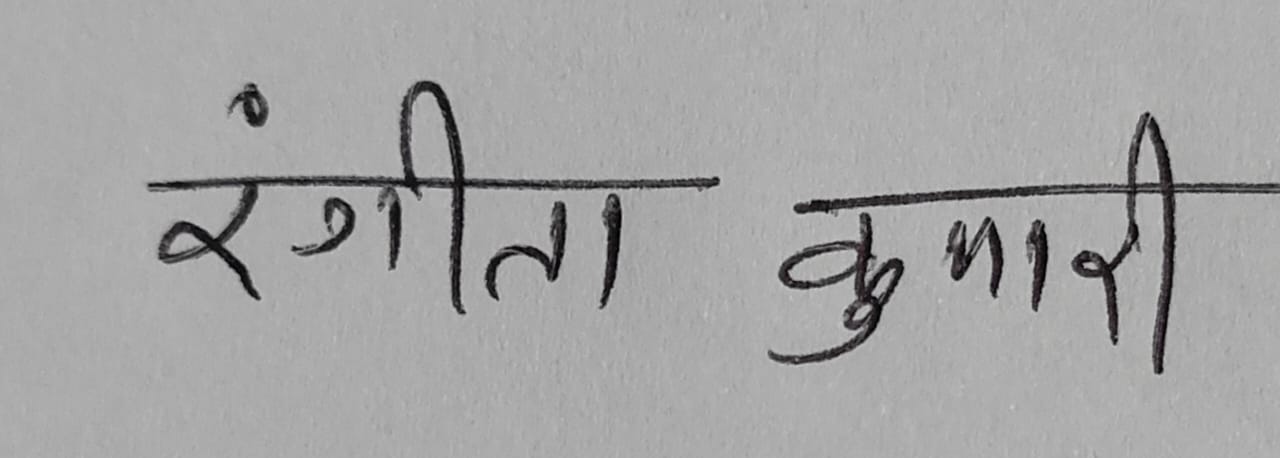 रंगीता कुमारी